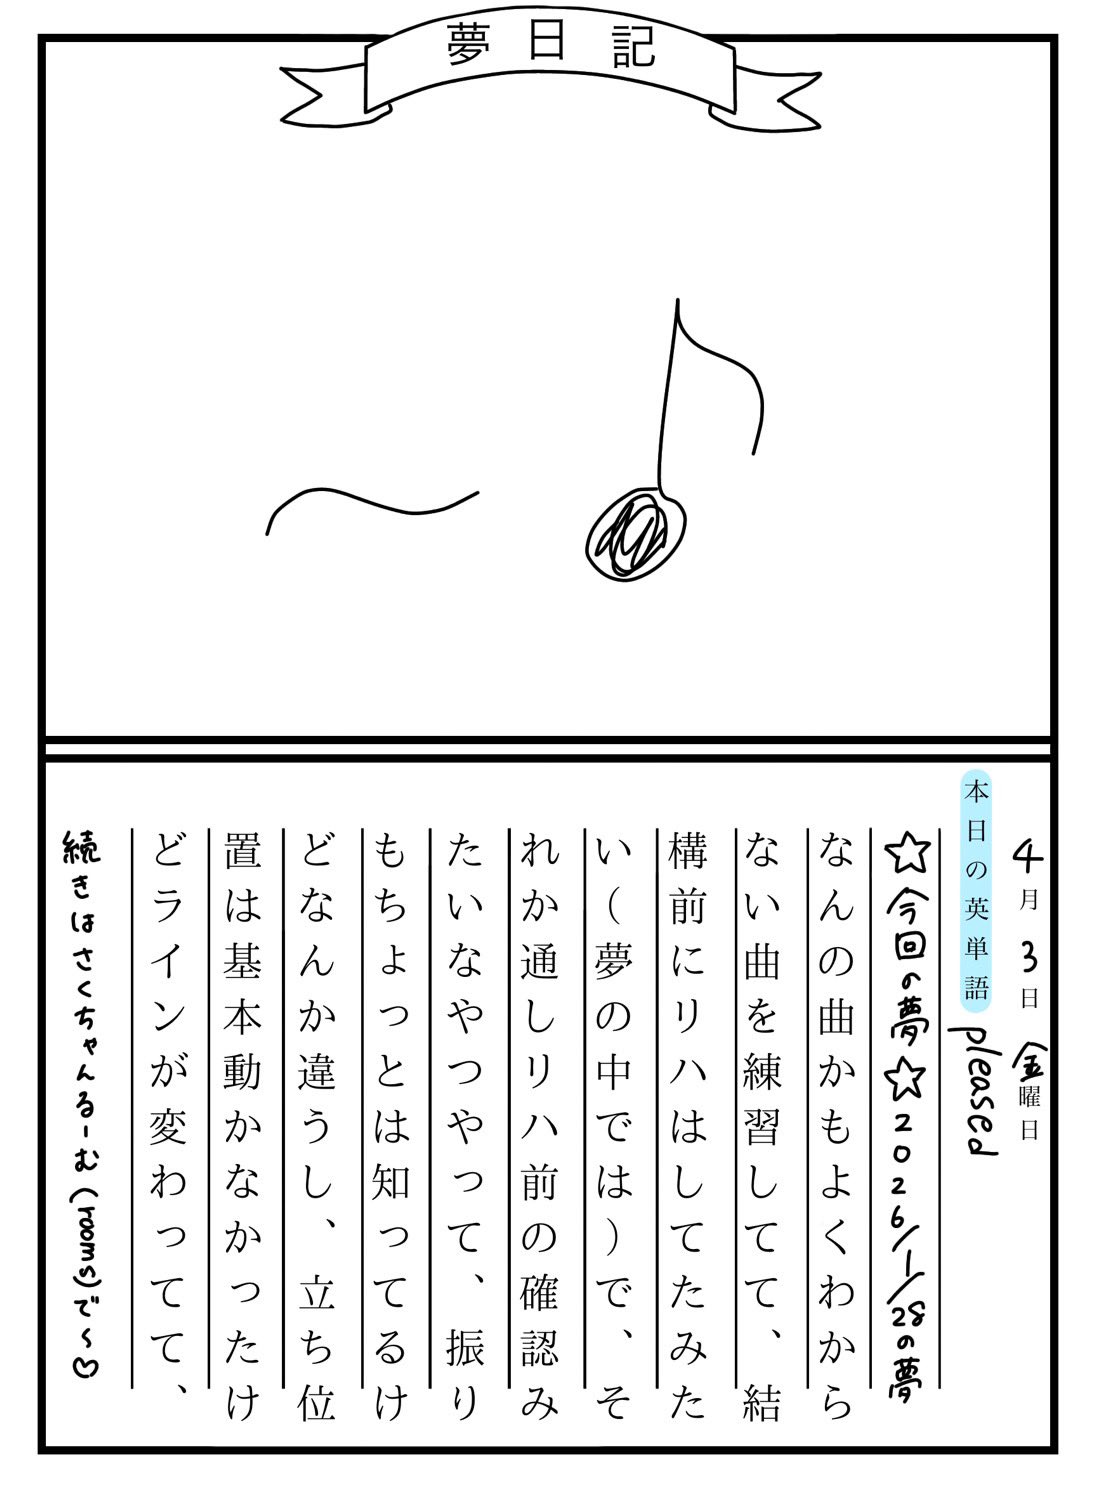 夢日記
4月3日金曜日
本日の英単語 pleased
☆今回の夢☆2026/1/28の夢
なんの曲かもよくわから
ない曲を練習してて、結
構前にリハはしてたみた
い(夢の中では)で、そ
れか通しリハ前の確認み
たいなやつやって、振り
もちょっとは知ってるけ
どなんか違うし、立ち位
置は基本動かなかったけ
どラインが変わってて、
続きはさくちゃんるーむ(rooms)で〜♡